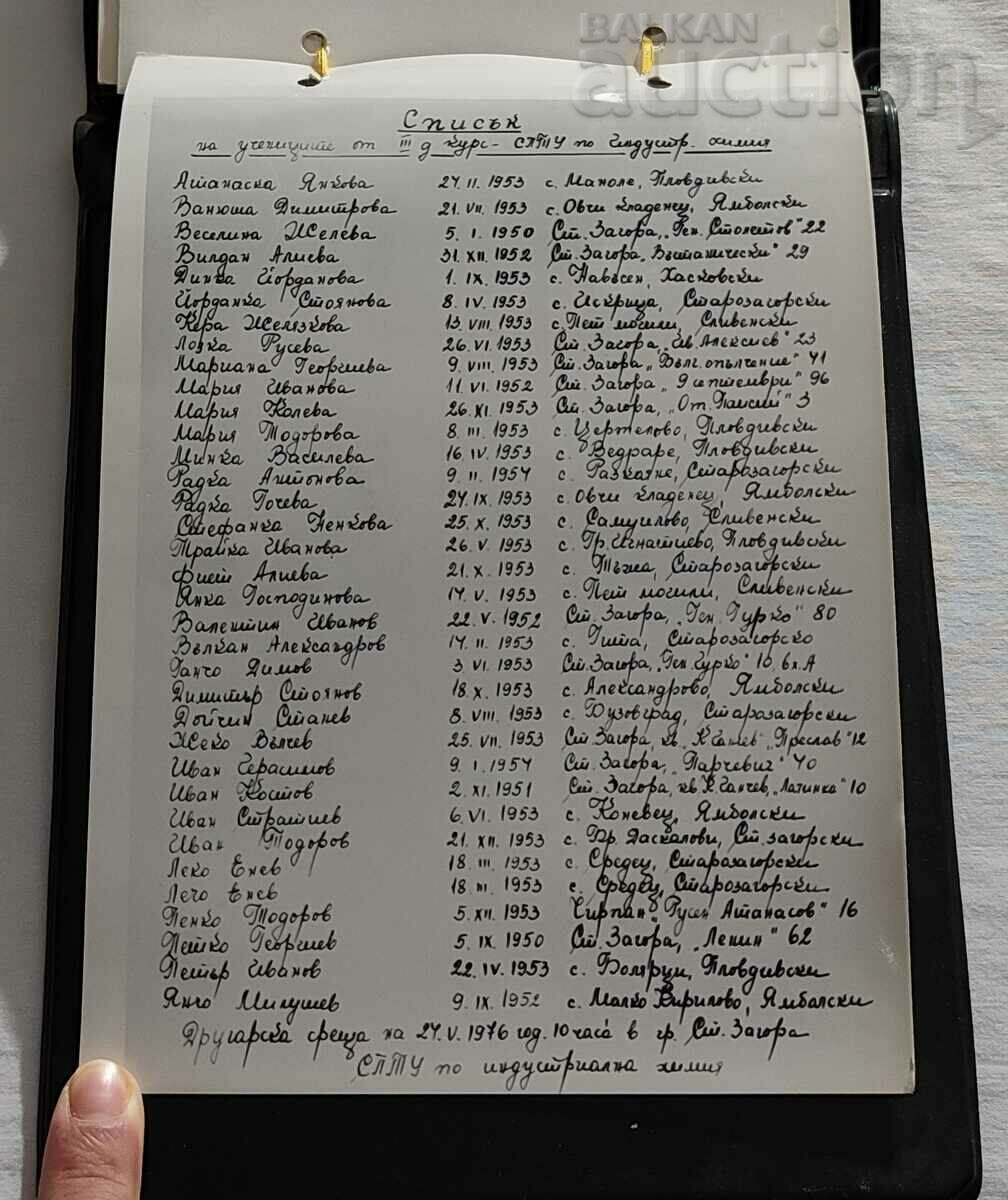 BALKAN
auction
Списък
на учениците от III д курс - СПТУ по индустр. химия
Атанаска Янкова 27. II. 1953 с. Маноле, Пловдивски
Ванюша Димитрова 21. VII. 1953 с. Овчи кладенец, Ямболски
Веселина Желева 5. I. 1950 Ст. Загора, "Ген. Столетов" 22
Вилдан Алиева 31. XII. 1952 Ст. Загора, Въстанически" 29
Динка Йорданова 1. IX. 1953 с. Навъсен, Хасковски
Йорданка Стоянова 8. IV. 1953 с. Искрица, Старозагорски
Кера Желязкова 13. VIII. 1953 с. Пет могили, Сливенски
Лозка Русева 26. VI. 1953 Ст. Загора, "Ив. Алексиев" 23
Мариана Георгиева 9. VIII. 1953 Ст. Загора "Бълг. опълчение" 41
Мария Иванова 11 VI. 1952 Ст. Загора "9 септември" 96
Мария Колева 26. XI. 1953 Ст. Загора, "От. Паисий" 3
Мария Тодорова 8. III. 1953 с. Цертелево, Пловдивски
Минка Василева 16. IV. 1953 с. Ведраре, Пловдивски
Радка Антонова 9. II. 1954 с. Разкаяне, Старазагорски
Радка Гочева 27. IX. 1953 с. Овчи кладенец, Ямболски
Стефанка Ненкова 25. X. 1953 с. Самуилово, Сливенски
Трайка Иванова 26. V. 1953 с. Гр. Игнатиево, Пловдивски
Фиет Алиева 21. X. 1953 с. Тъжа, Старозагорски
Янка Господинова 17. V. 1953 с. Пет могили, Сливенски
Валентин Иванов 22. V. 1952 Ст. Загора, "Ген. Гурко" 80
Вълкан Александров 17. II. 1953 с. Гита, Старозагорско
Ганчо Димов 3 VI. 1953 Ст. Загора, "Ген. Гурко" 10. бл. А
Димитър Стоянов 18. X. 1953 с. Александрово, Ямболски
Дойчин Станев 8. VIII. 1953 с. Бузовград, Старазагорски
Жеко Вълчев 25. VII. 1953 Ст. Загора, кв. "К. Ганчев" "Преслав" 12
Иван Герасимов 9. I. 1954 Ст. Загора, "Парчевич" 40
Иван Костов 2. XI. 1951 Ст. Загора, кв. К. Ганчев, "Латинка" 10
Иван Стратиев 6. VI. 1953 с. Коневец, Ямболски
Иван Тодоров 21. XII. 1953 с. Бр. Даскалови, Ст. загорски
Леко Енев 18. III. 1953 с. Средец, Старазагорски
Лечо Енев 18. III. 1953 с. Средец, Старозагорски
Пенко Тодоров 5. XII. 1953 Чирпан "Русен Атанасов" 16
Петко Георгиев 5. IX. 1950 Ст. Загора, "Ленин" 62
Петър Иванов 22. IV. 1953 с. Болярци, Пловдивски
Янчо Милушев 9. IX. 1952 с. Малко Кирилово, Ямболски
Другарска среща на 27. V. 1976 год. 10 часа в гр. Ст. Загора
СПТУ по индустриална химия